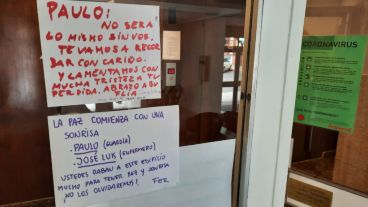 PAULO:
NO SERA
LO MISMO SIN VOS.
TE VAMOS A RECOR
DAR CON CARIÑO.
Y LAMENTAMOS CON
MUCHA TRISTEZA TU
PERDIDA. ABRAZO A SU
FLIA.
LA PAZ COMIENZA CON UNA
SONRISA
. PAULO (GUARDIA)
. JOSÉ LUIS (ENFERMERO)
USTEDES DABAN A ESTE EDIFICIO
MUCHO PARA TENER PAZ Y SONRISA
NO LOS OLVIDAREMOS! FER
CORONAVIRUS